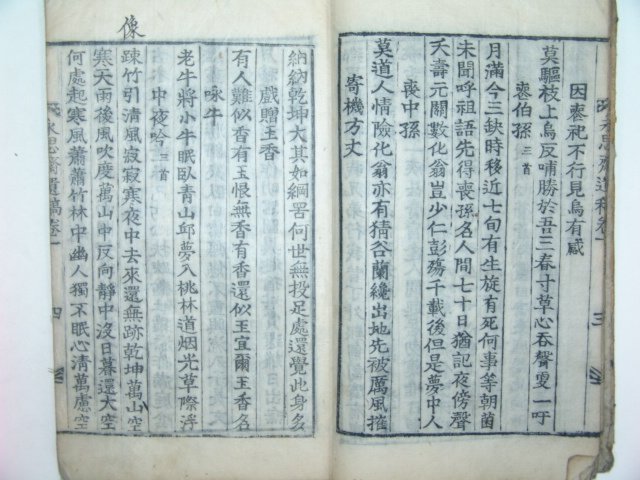 因蔘祀不行見烏有感
莫驅枝上烏反哺勝於吾三春寸草心吞聲夏一吁
喪伯孫 三首
月滿今三缺時移近七旬有生旋有死何事等朝菌
未聞呼祖語先得喪孫名人間七十日猶記夜傍聲
夭壽元關數化翁豈少仁彭殤千載後但是夢中人
喪中孫
莫道人情險化翁亦有猜谷蘭纔出地先被厲風摧
寄機方丈
永思齋遺稿卷一
三
納納乾坤大其如網罟何世無投足處還覺此身多
戲贈玉香
有人難似香有玉恨無香有香還似玉宜爾玉香名
咏牛
老牛將小牛眠臥青山邱夢入桃林道烟光草際浮
中夜吟 三首
疎竹引清風寂寂寒夜中去來還無跡乾坤萬山空
寒天雨後風吹度萬山中反向靜中沒日暮還太空
何處起寒風蕭蕭竹林中幽人獨不眠心清萬慮空
永思齋遺稿卷一
四
像